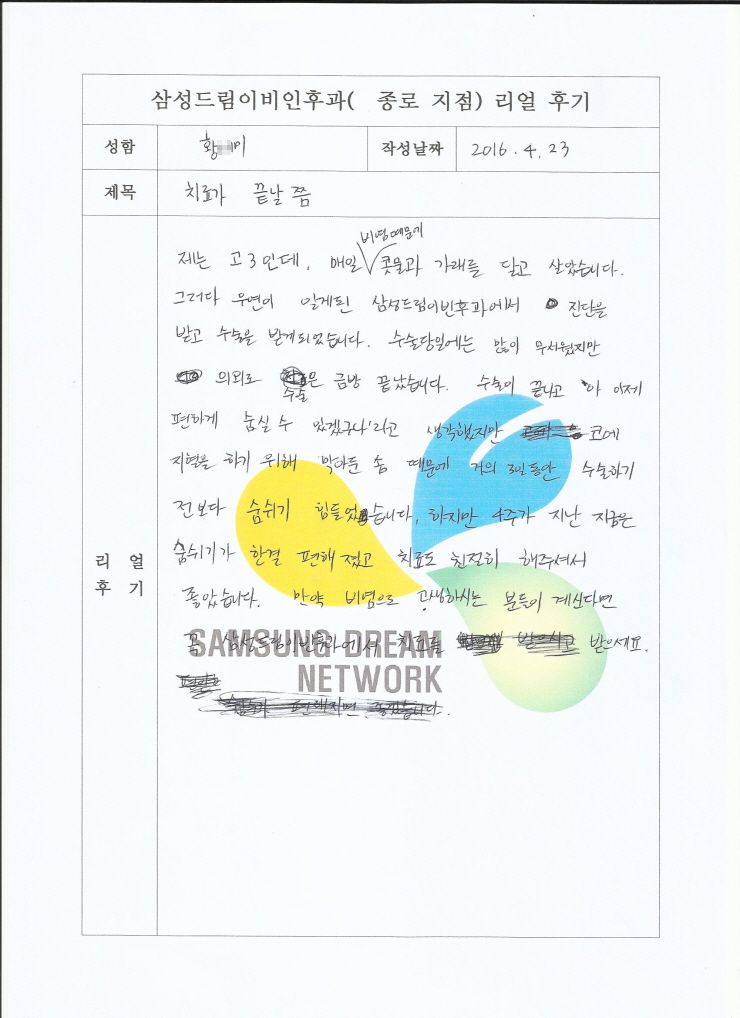 삼성드림이비인후과( 종로 지점) 리얼 후기
성함 황 미 작성날짜 2016. 4. 23
제목 치료가 끝날 쯤
리 얼
후 기
비염때문에
제는 고3인데, 매일 콧물과 가래를 달고 살았습니다.
그러다 우연이 알게된 삼성드림이빈후과에서 진단을
받고 수술을 받게되었습니다. 수술당일에는 많이 무서웠지만
의외로 은 금방 끝났습니다. 수술이 끝나고 '아 이제
수술
편하게 숨실 수 있겠구나'라고 생각했지만 코에
지혈을 하기 위해 막아둔 솜 때문에 거의 3일동안 수술하기
전보다 숨쉬기 힘들었습니다, 하지만 4주가 지난 지금은
숨쉬기가 한결 편해졌고 치료도 친절히 해주셔서
좋았습니다. 만약 비염으로 고생하시는 분들이 계신다면
꼭 삼성드림이빈후과에서 치료를 받으세요.
SAMSUNG DREAM
NETWORK